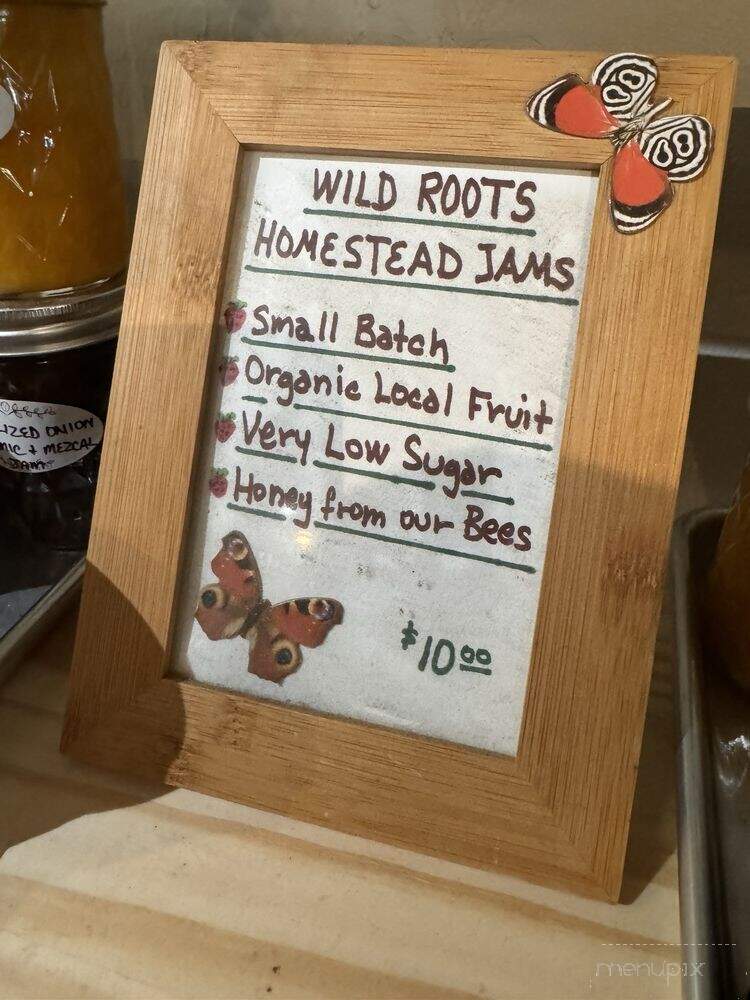 WILD ROOTS
HOMESTEAD JAMS
Small Batch
Organic Local Fruit
Very Low Sugar
Honey from our Bees
$10.00
IZED ONION
MIC + MEZCAL
JAM
menupix